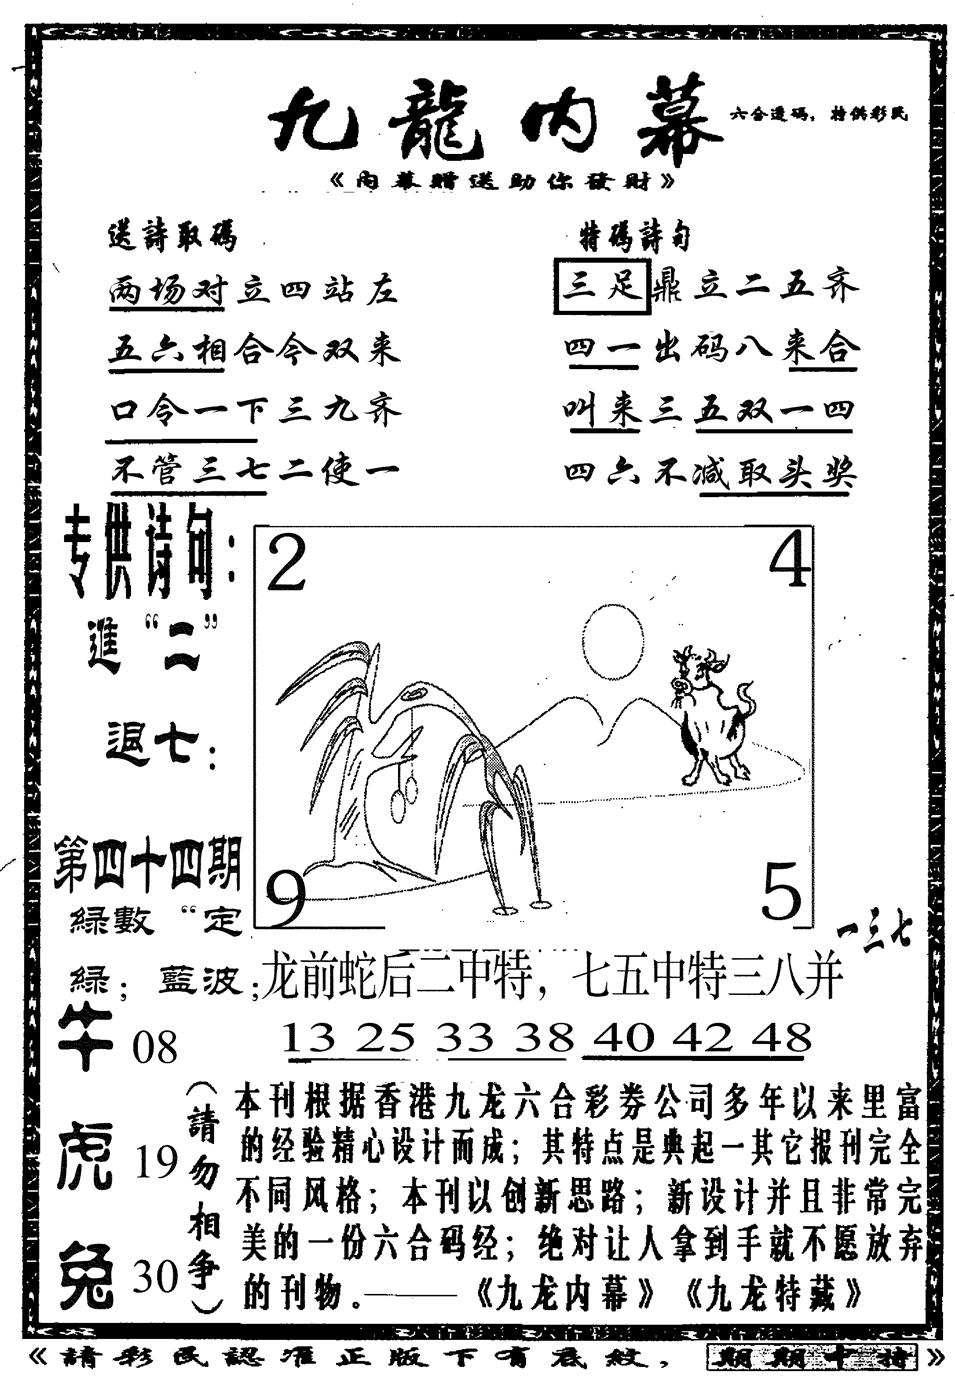 九龍内幕 六合透码，特供彩民
《内幕赠送助你發財》
送詩取碼
两场对立四站左
五六相合今双来
口令一下三九齐
不管三七二使一
特碼詩句
三足鼎立二五齐
四一出码八来合
叫来三五双一四
四六不减取头奖
专供诗句：
進“二”
退七：
第四十四期
緑數“定
緑；藍波；
2
4
9
5
一三七
龙前蛇后二中特，七五中特三八并
13 25 33 38 40 42 48
牛 08
虎 19
兔 30
（請勿相争）
本刊根据香港九龙六合彩券公司多年以来里富
的经验精心设计而成；其特点是典起一其它报刊完全
不同风格；本刊以创新思路；新设计并且非常完
美的一份六合码经；绝对让人拿到手就不愿放弃
的刊物。——《九龙内幕》《九龙特藏》
《請彩民認准正版下有底紋，期期中特》